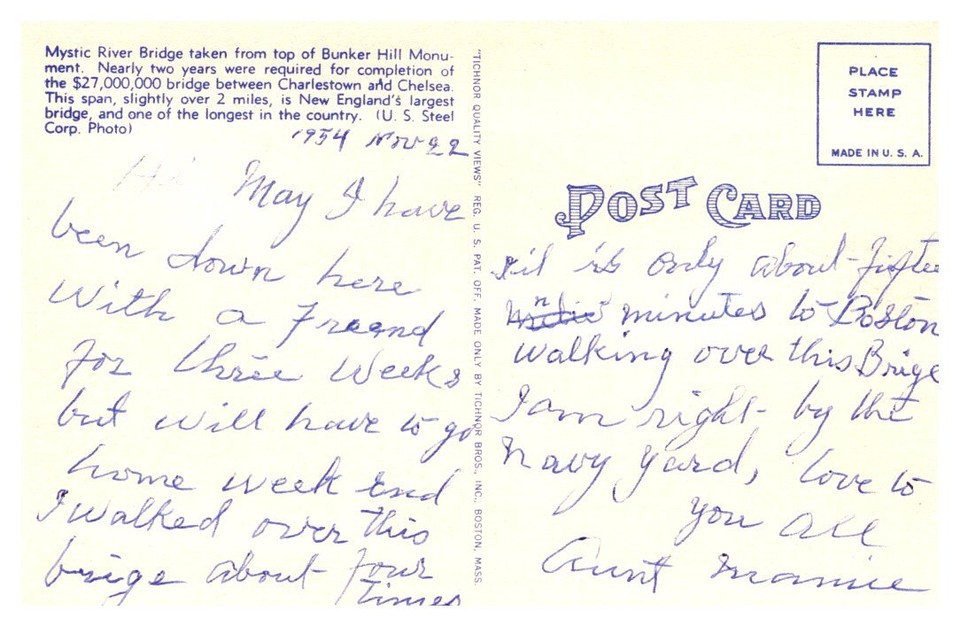 Mystic River Bridge taken from top of Bunker Hill Monu-
ment. Nearly two years were required for completion of
the $27,000,000 bridge between Charlestown and Chelsea.
This span, slightly over 2 miles, is New England's largest
bridge, and one of the longest in the country. (U. S. Steel
Corp. Photo)
1954 Nov 22
Hi May I have
been down here
With a Freend
for three Weeks
but will have to go
home week end
I walked over this
brige about four
times
"TICHNOR QUALITY VIEWS" REG. U. S. PAT. OFF. MADE ONLY BY TICHNOR BROS., INC., BOSTON, MASS.
PLACE
STAMP
HERE
MADE IN U. S. A.
POST CARD
is only about fiftee
n minutes to Boston
walking over this Brige
I am right by the
Navy Yard, love to
you all
Aunt Mamie